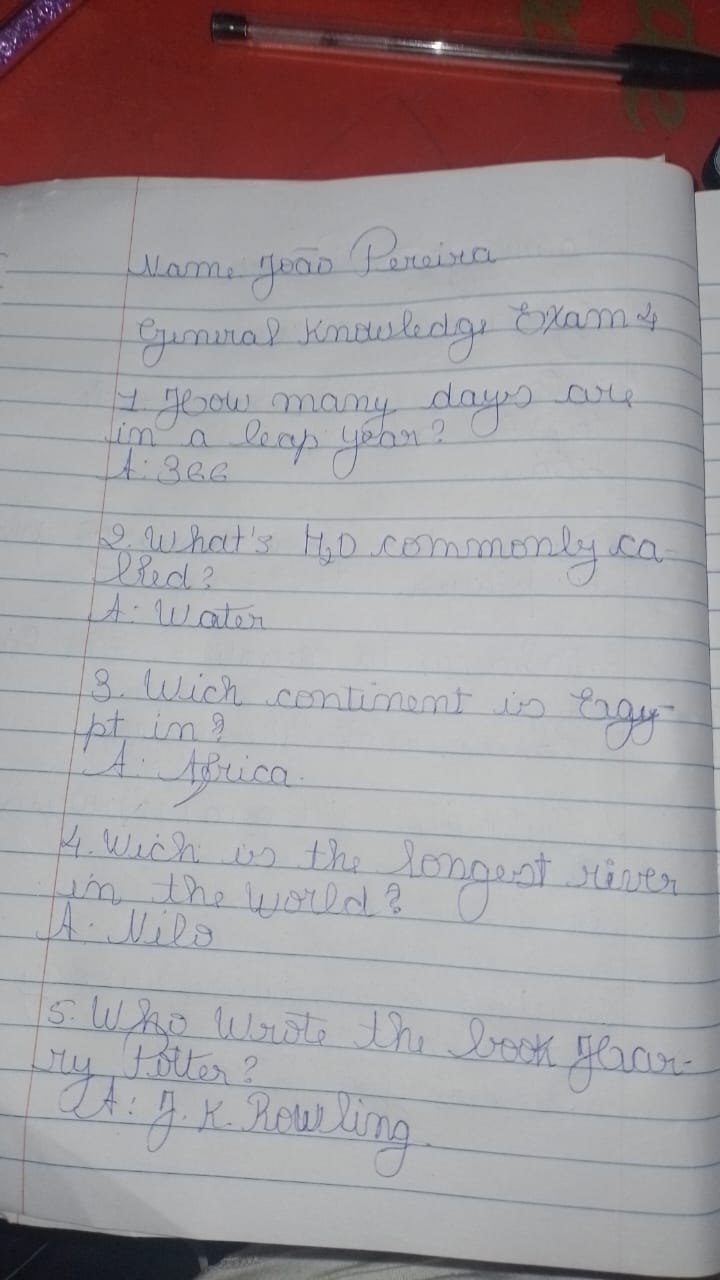 Name João Pereira
General Knowledge Exam 4
1 How many days are
in a leap year?
A: 366
2. What's H₂O commonly ca-
lled?
A: Water
3. Wich continent is Egy-
pt in?
A: Africa.
4. Wich is the longest river
in the world?
A: Nilo
5. Who wrote the book Har-
ry Potter?
A: J. K. Rowling.